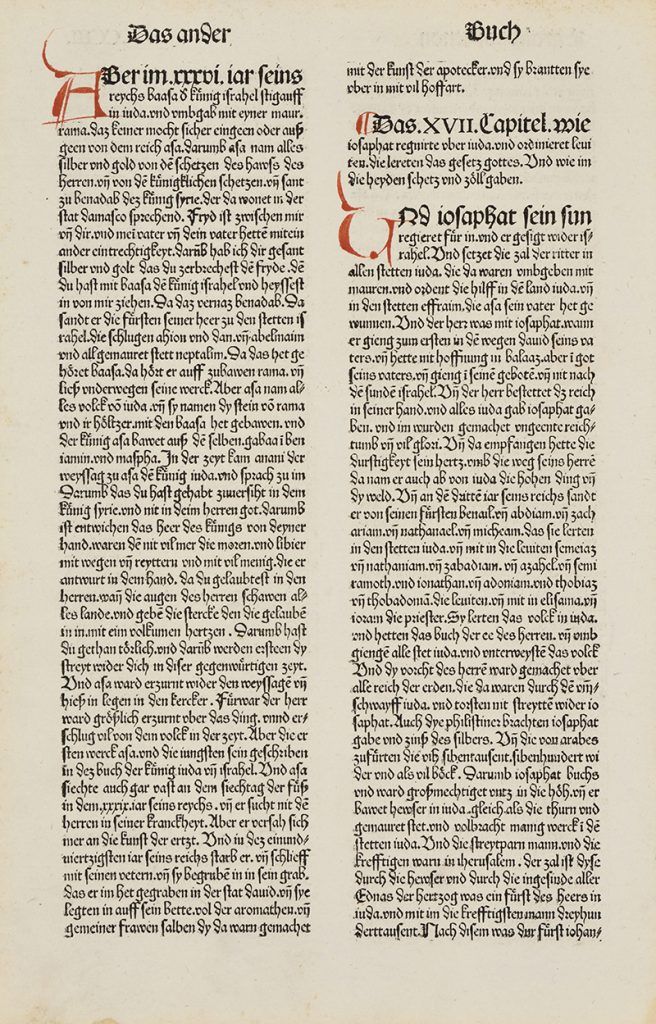 Das ander
Buch
ABer im .xxxvi. iar seins
reychs baasa d̕ kűnig israhel stigauff
in iuda.vnd vmbgab mit eyner maur.
rama.daz keiner mocht sicher eingeen oder auß
geen von dem reich asa.darumb asa nam alles
silber vnd gold von dẽ schetzen des hawss des
herren.vñ von dẽ kűnigklichen schetzen.vñ sant
zu benadab dez kűnig syrie.der da wonet in der
stat damasco sprechend. Fryd ist zwischen mir
vñ dir.vnd mei vater vñ dein vater hettẽ mitein
ander eintrechtigkeyt.darũb hab ich dir gesant
silber vnd golt das du zerbrechest dẽ fryde .dẽ
du hast mit baasa dẽ kűnig israhel.vnd heyssest
in von mir ziehen. Da daz vernaz benadab. Da
sandt er die fűrsten seiner heer zu den stetten is
rahel.die schlugen ahion vnd dan.vñ abelmaim
vnd all gemauret stett neptalim. Da das het ge
hőret baasa.da hőrt er auff zubawen rama.vñ
ließ vnderwegen seine werck. Aber asa nam al-
les volck vő iuda.vñ sy namen dy stein vő rama
vnd ir hőltzer.mit den baasa het gebawen.vnd
der kűnig asa bawet auß dẽ selben.gabaa ĩ ben
iamin.vnd maspha. In der zeyt kam anani der
weyssag zu asa dẽ kűnig iuda.vnd sprach zu im
Darumb das du hast gehabt zuuersiht in dem
kűnig syrie.vnd nit in deim herren got.darumb
ist entwichen das heer des kűnigs von deyner
hand.waren dẽ nit vil mer die moren.vnd libier
mit wegen vñ reyttern vnd mit vil menig.die er
antwurt in dem hand. da du gelaubtest in den
herren.wañ die augen des herren schawen al-
les lande.vnd gebẽ die stercke den die gelaubẽ
in in.mit ein volkumen hertzen . Darumb hast
du gethan tőrlich.vnd darũb werden ersteen dy
streyt wider dich in diser gegenwűrtigen zeyt.
Vnd asa ward erzurnt wider den weyssagẽ vñ
hieß in legen in den kercker . Fűrwar der herr
ward grőßlich erzurnt vber das ding. vnnd er-
schlug vil von dem volck in der zeyt. Aber die er
sten werck asa.vnd die iungsten sein geschriben
in dez buch der kűnig iuda vñ israhel. Vnd asa
siechte auch gar vast an dem siechtag der fűß
in dem.xxxix.iar seins reychs . vñ er sucht nit dẽ
herren in seiner kranckheyt. Aber er versah sich
mer an die kunst der ertzt. Vnd in dez einund-
viertzigsten iar seins reichs starb er. vñ schlieff
mit seinen vetern.vñ sy begrubẽ in in sein grab.
das er im het gegraben in der stat dauid.vñ sye
legten in auff sein bette.vol der aromathen.vñ
gemeiner frawen salben dy da warn gemachet
mit der kunst der apotecker.vnd sy brantten sye
vber in mit vil hoffart.
¶Das.XVII.Capitel.wie
iosaphat regnirte vber iuda.vnd ordinieret leui
ten.die lereten das gesetz gottes. Vnd wie im
die heyden schetz vnd zőll gaben.
VNd iosaphat sein sun
regieret fűr in.vnd er gesigt wider is-
rahel. Vnd setzet die zal der ritter in
allen stetten iuda. die da waren vmbgeben mit
mauren.vnd ordent die hilff in dẽ land iuda.vñ
in den stetten effraim.die asa sein vater het ge
wunnen. Vnd der herr was mit iosaphat.wann
er gieng zum ersten in dẽ wegen dauid seins va
ters.vñ hette nit hoffnung in balaaz.aber ĩ got
seins vaters.vñ gieng ĩ seinẽ gebotẽ.vñ nit nach
dẽ sundẽ israhel. Vñ der herr bestettet dz reich
in seiner hand.vnd alles iuda gab iosaphat ga-
ben. vnd im wurden gemachet vngeente reich-
tumb vñ vil glori. Vñ da empfangen hette die
durstigkeyt sein hertz.vmb die weg seins herrẽ
da nam er auch ab von iuda die hohen ding vñ
dy weld. Vñ an dẽ drittẽ iar seins reichs sandt
er von seinen fűrsten benail.vñ abdiam.vñ zach
ariam.vñ nathanael.vñ micheam.das sie lerten
in den stetten iuda.vñ mit in die leuiten semeiaz
vñ nathaniam.vñ zabadiam. vñ azahel.vñ semi
ramoth.vnd ionathan.vñ adoniam.vnd thobiaz
vñ thobadoniã.die leuiten.vñ mit in elisama.vñ
ioram die priester. Sy lerten das volck in iuda.
vnd hetten das buch der ee des herren. vñ vmb
giengẽ alle stet iuda.vnd vnterweystẽ das volck
Vnd dy vorcht des herrẽ ward gemachet vber
alle reich der erden.die da waren durch dẽ vm-
schwayff iuda. vnd torsten nit streyttẽ wider io
saphat. Auch dye philistiner brachten iosaphat
gabe vnd zinß des silbers. Vñ die von arabes
zufűrten die vih sibentausent.sibenhundert wi
der vnd als vil bőck. Darumb iosaphat wuchs
vnd ward großmechtiget vntz in die hőh.vñ er
bawet hewser in iuda .gleich.als die thurn vnd
gemauret stet.vnd volbracht manig werck ĩ dẽ
stetten iuda. Vnd die streytparn mann.vnd die
krefftigen warn in iherusalem . der zal ist dyse
durch die hewser vnd durch die ingesinde aller
Ednas der hertzog was ein fűrst des heers in
iuda.vnd mit im die krefftigsten mann dreyhun
derttausent. Nach disem was der fűrst iohan-